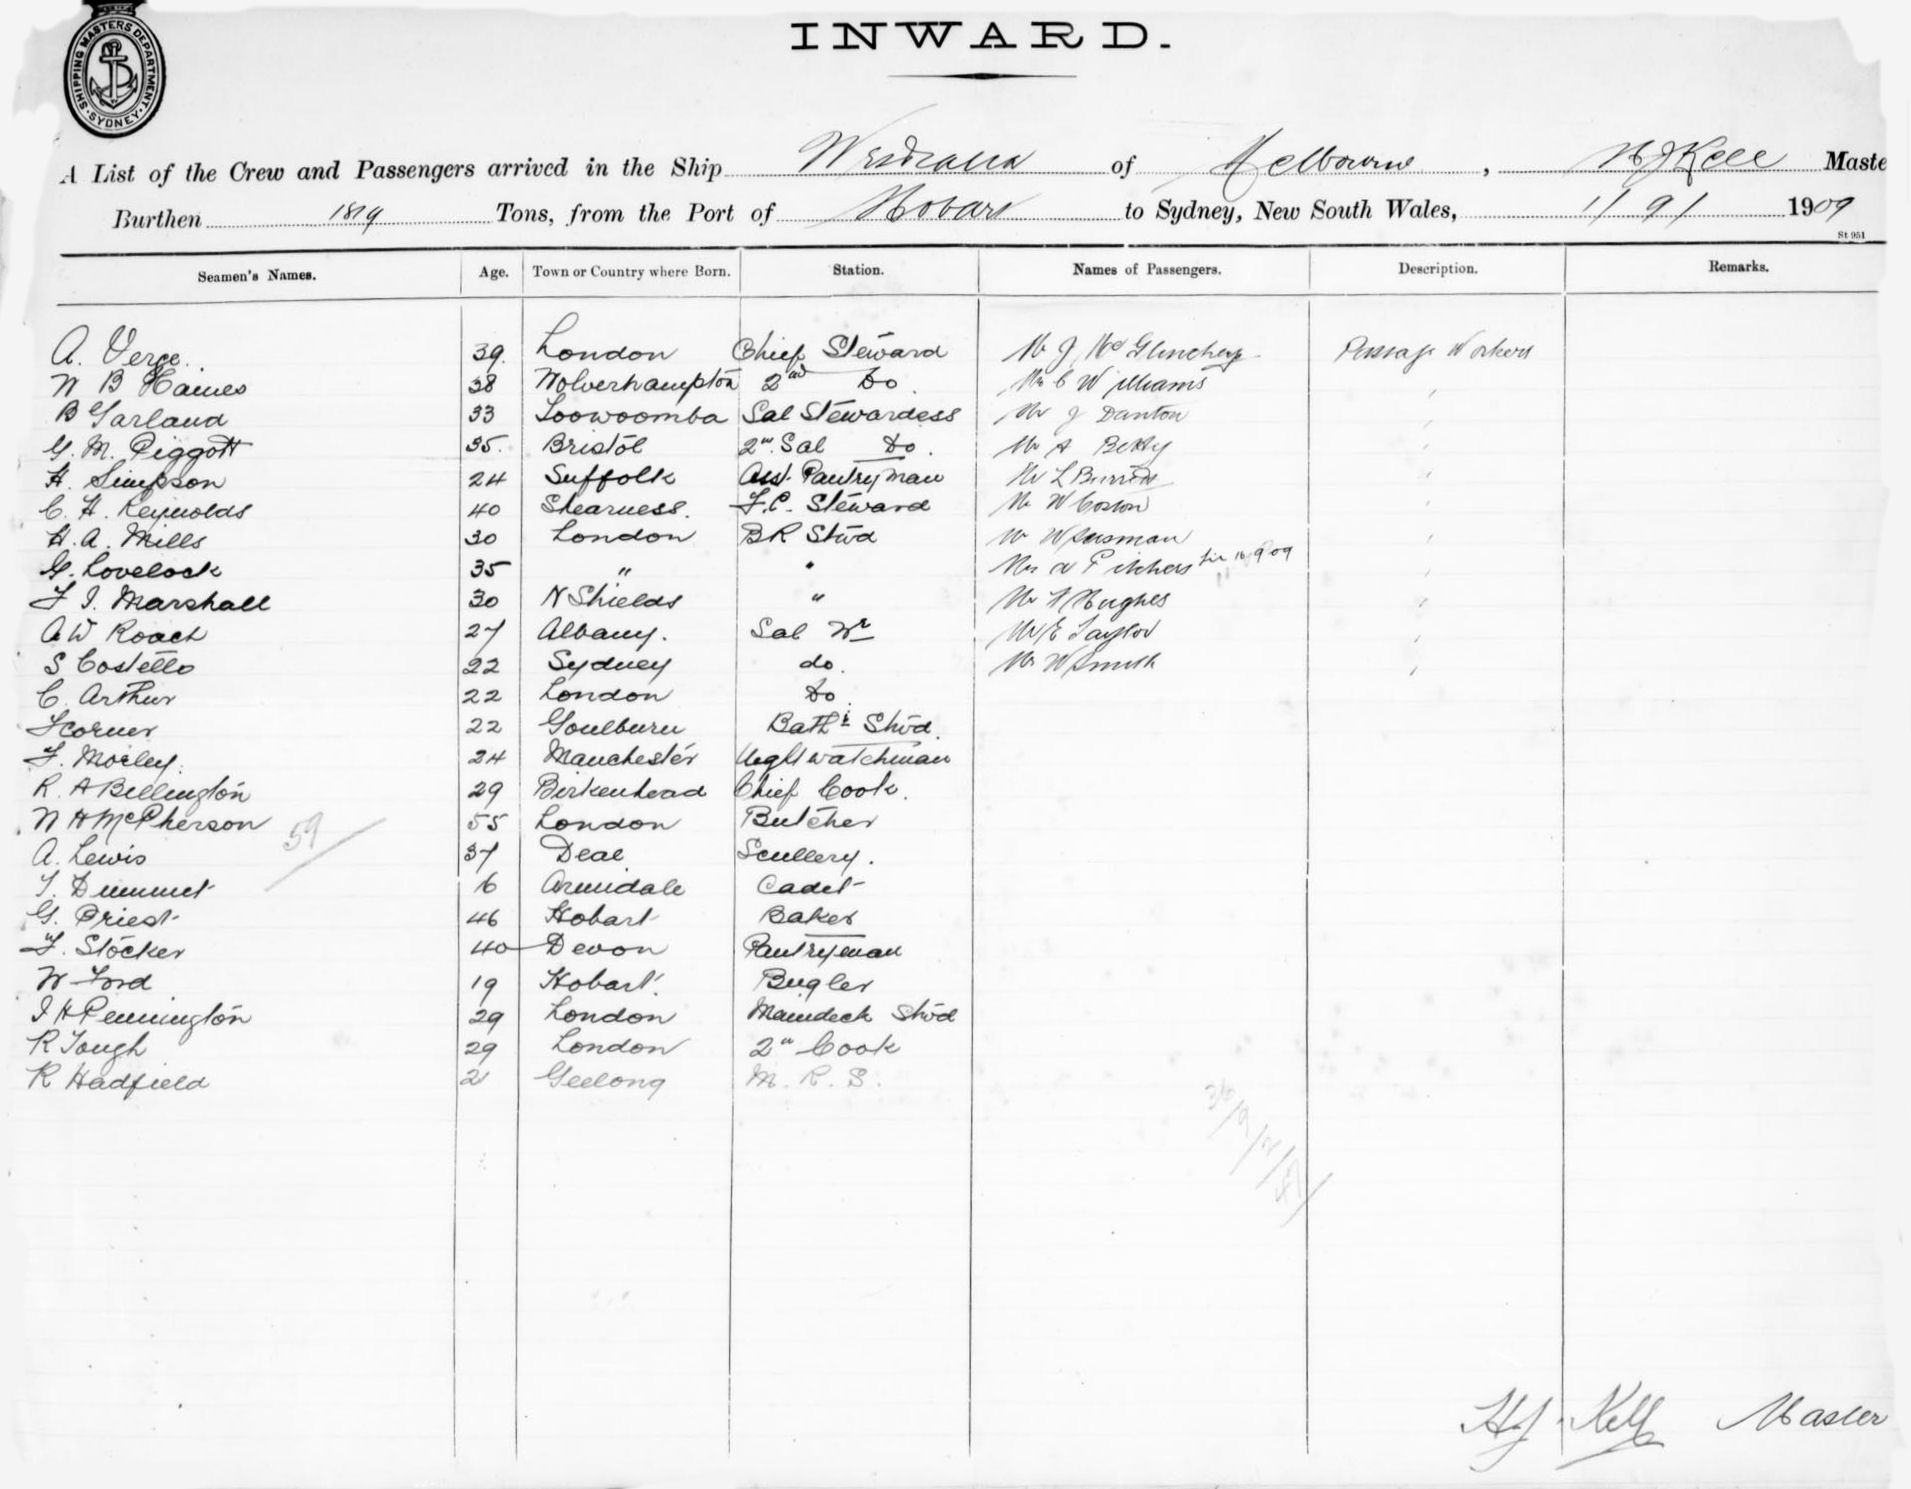 INWARD.
SHIPPING MASTERS DEPARTMENT · SYDNEY ·
A List of the Crew and Passengers arrived in the Ship Westralia of Melbourne, H J Kell Maste
Burthen 1819 Tons, from the Port of Hobart to Sydney, New South Wales, 1/ 9/ 1909
St 951
Seamen's Names. Age. Town or Country where Born. Station. Names of Passengers. Description. Remarks.
A. Verge. 39. London Chief Steward Mr J McGlinchey Passage Workers
W B Haines 38 Wolverhampton 2nd Do. Mr C Williams
B Garland 33 Toowoomba Sal Stewardess Mr J Danton
G. M. Piggott 35. Bristol 2nd Sal Do. Mr A Betty
H. Simpson 24 Suffolk Asst. Pantryman Mr L
C. H. Reynolds 40 Shearness. F.C. Steward Mr W
H. A. Mills 30 London BR Stwd Mr W
G. Lovelock 35 " " Mr A Pitchers 16 9 09
F I. Marshall 30 N Shields " Mr Hughes
A W Roach 27 Albany. Sal Wr Mr E Taylor
S Costello 22 Sydney do. Mr W Smith
C. Arthur 22 London Do
F Corner 22 Goulburn Bath r Stwd.
F. Morley. 24 Manchester Nightwatchman
R. A Billington 29 Birkenhead Chief Cook.
W H McPherson 55 London Butcher
59/
A. Lewis 37 Deal Scullery.
T. Dummet 16 Armidale Cadet
G. Priest 46 Hobart Baker
F. Stocker 40 Devon Pantryman
W Ford 19 Hobart. Bugler
I H Pennington 29 London Maindeck Stwd
R Tough 29 London 2nd Cook
R Hadfield 21 Geelong M. R. S.
36/9/2/47/
H J Kell Master